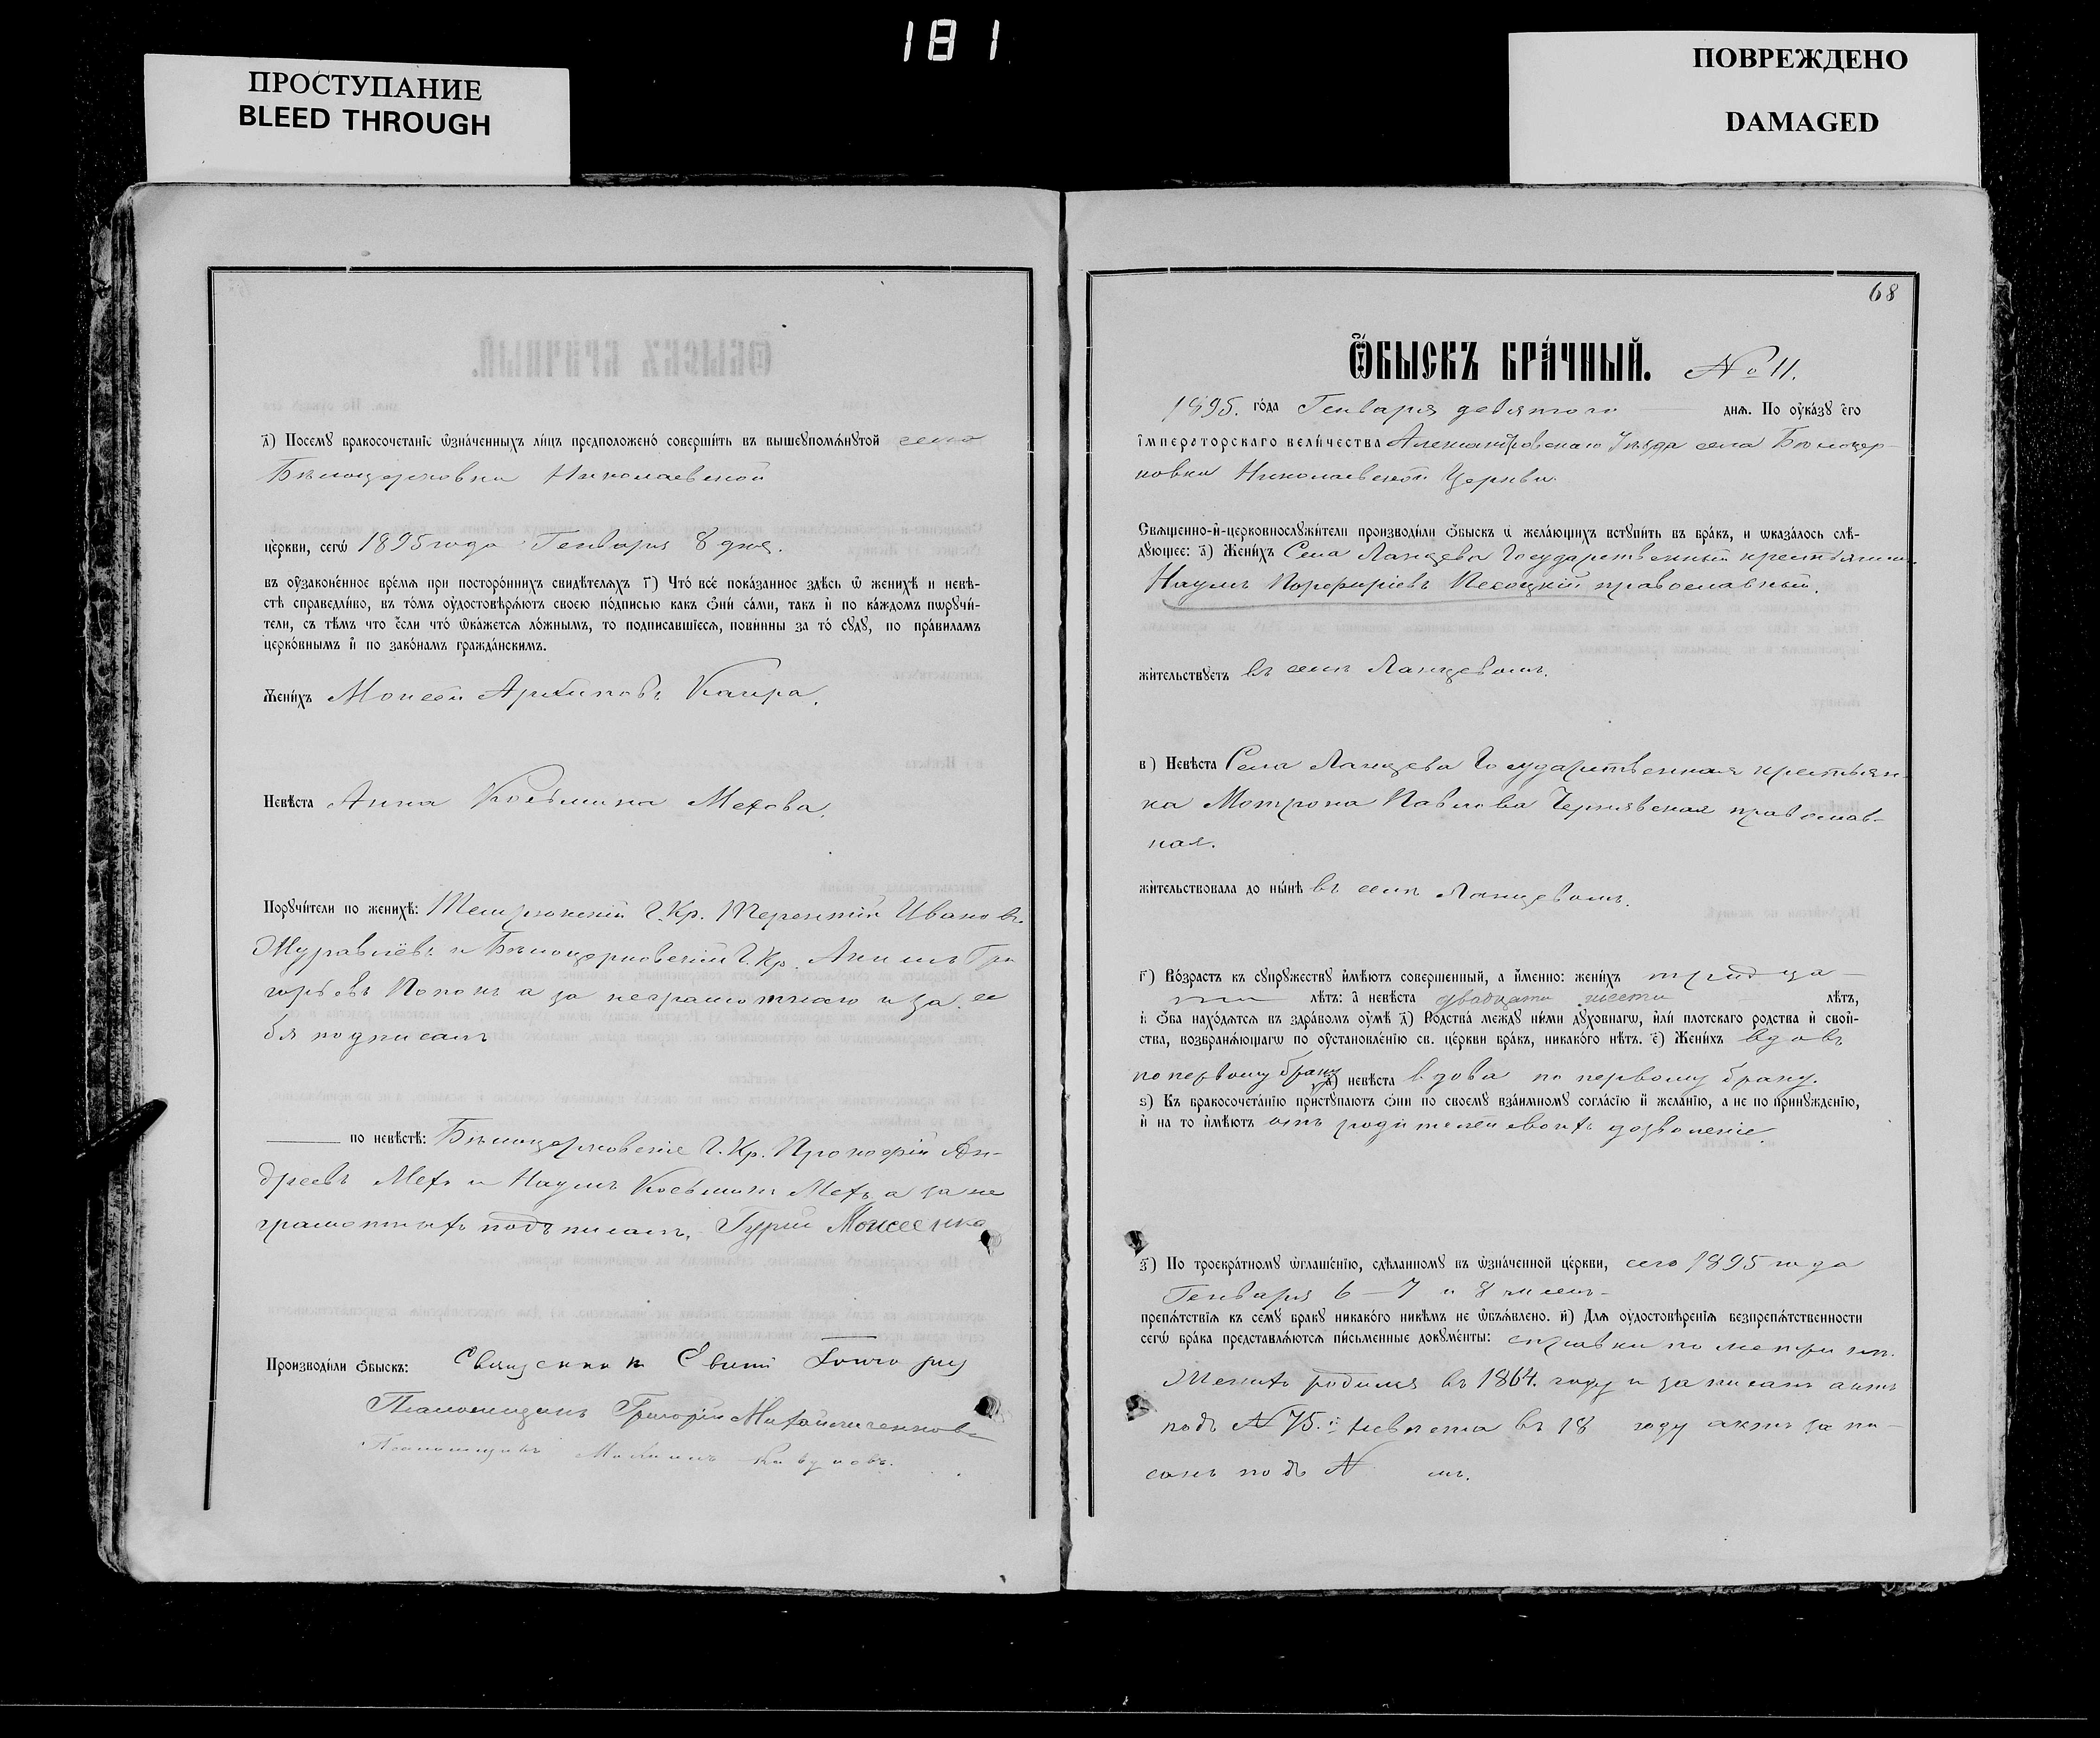 181
ПРОСТУПАНИЕ
BLEED THROUGH
ПОВРЕЖДЕНО
DAMAGED
а҃) Посему̀ бракосочетаніе ѡ҆зна́ченныхъ ли́цъ предположено́ соверши́ть въ вышеупомя́нутой село
Бѣлоцерковки Николаевской
це́ркви, сегѡ̀ 1895 года Генваря 8 дня.
въ оу҆зако́ненное вре́мя при посторо́ннихъ свидѣ́теляхъ г҃) Что́ все́ пока́занное здѣсь ѡ҆ женихѣ̀ и невѣ́-
стѣ справедли́во, въ то́мъ оу҆достовѣря́ютъ своею по́дписью какъ ѻ҆ни́ са́ми, такъ и҆ по ка́ждомъ пору́чи-
тели, съ тѣмъ что є҆сли что́ ѡ҆ка́жется ло́жнымъ, то подписавшіеся, пови́нны за то́ суду̀, по пра́виламъ
церко́внымъ и҆ по зако́намъ гражда́нскимъ.
Жени́хъ Моисей Архиповъ Каира.
Невѣ́ста Анна Косьмина Мехова.
Поручи́тели по женихѣ̀: Темрюкскій Г. Кр. Терентій Ивановъ
Журавлёвъ и Бѣлоцерковскій Г. Кр. Акимъ Гри
горьевъ Попокъ а за неграмотнаго и за се
бя подписалъ
по невѣ́стѣ: Бѣлоцерковскіе Г. Кр. Прокофій Ан-
дреевъ Мехъ и Наумъ Косьминъ Мехъ а за не
грамотныхъ подъписалъ, Гурій Моисеенко
Производи́ли ѻ҆быскъ: Священникъ
Псаломщикъ Григорій
Псаломщикъ
68
Ѻ҆БЫСКЪ БРА́ЧНЫЙ. № 11.
1895. го́да Генваря девятаго дня. По оу҆ка́зу є҆го̀
і҆мператорскаго вели́чества Александровскаго Уѣзда села Бѣлоцер-
ковки Николаевской Церкви.
Священно-и҆-церковнослужи́тели производи́ли ѻ҆быскъ ѡ҆ жела́ющихъ вступи́ть въ бра́къ, и ѡ҆каза́лось слѣ́-
дующее: а҃) Жени́хъ Села Ланцева Государственный крестьянинъ
Наумъ Порфиріевъ Песоцкій православный.
жи́тельствуетъ въ селѣ Ланцевомъ.
в҃) Невѣ́ста Села Ланцева Государственная крестьян-
ка Мотрона Павлова Чернявская православ-
ная.
жи́тельствовала до ны́нѣ въ селѣ Ланцевомъ.
г҃) Во́зрастъ къ супружеству и҆мѣ́ютъ совершенный, а и҆менно: жени́хъ тридца-
ти лѣтъ: а҆ невѣ́ста двадцати шести лѣтъ,
и҆ ѻ҆ба нахо́дятся въ здра́вомъ оу҆мѣ̀ д҃) Родства́ между ни́ми духовнагѡ, и҆ли́ плотскаго родства и҆ свой-
ства, возбраня́ющагѡ по оу҆становле́нію св. це́ркви бра́къ, никако́го нѣ́тъ. є҃) Жени́хъ вдовъ
по первому браку а҆) невѣ́ста вдова по первому браку.
ѕ҃) Къ бракосочета́нію приступаютъ ѻ҆ни по своему̀ вза́имному согла́сію и҆ жела́нію, а не по прину́жденію,
и҆ на то и҆мѣ́ютъ отъ родителей своихъ дозволеніе.
з҃) По троекра́тному ѡ҆глаше́нію, сдѣ́ланному въ ѡ҆зна́ченной це́ркви, сего 1895 года
Генваря 6 – 7 и 8 числъ-
препя́тствія къ сему̀ браку никако́го никѣ́мъ не ѡ҆бъя́влено. и҃) Для оу҆достовѣ́ренія безпрепя́тственности
сегѡ̀ бра́ка представля́ются пи́сьменные докуме́нты: справки по метрикѣ.
Женихъ родился въ 1864. году и записанъ актъ
подъ № 75. невѣста въ 18 году актъ запи-
санъ подъ № мъ.